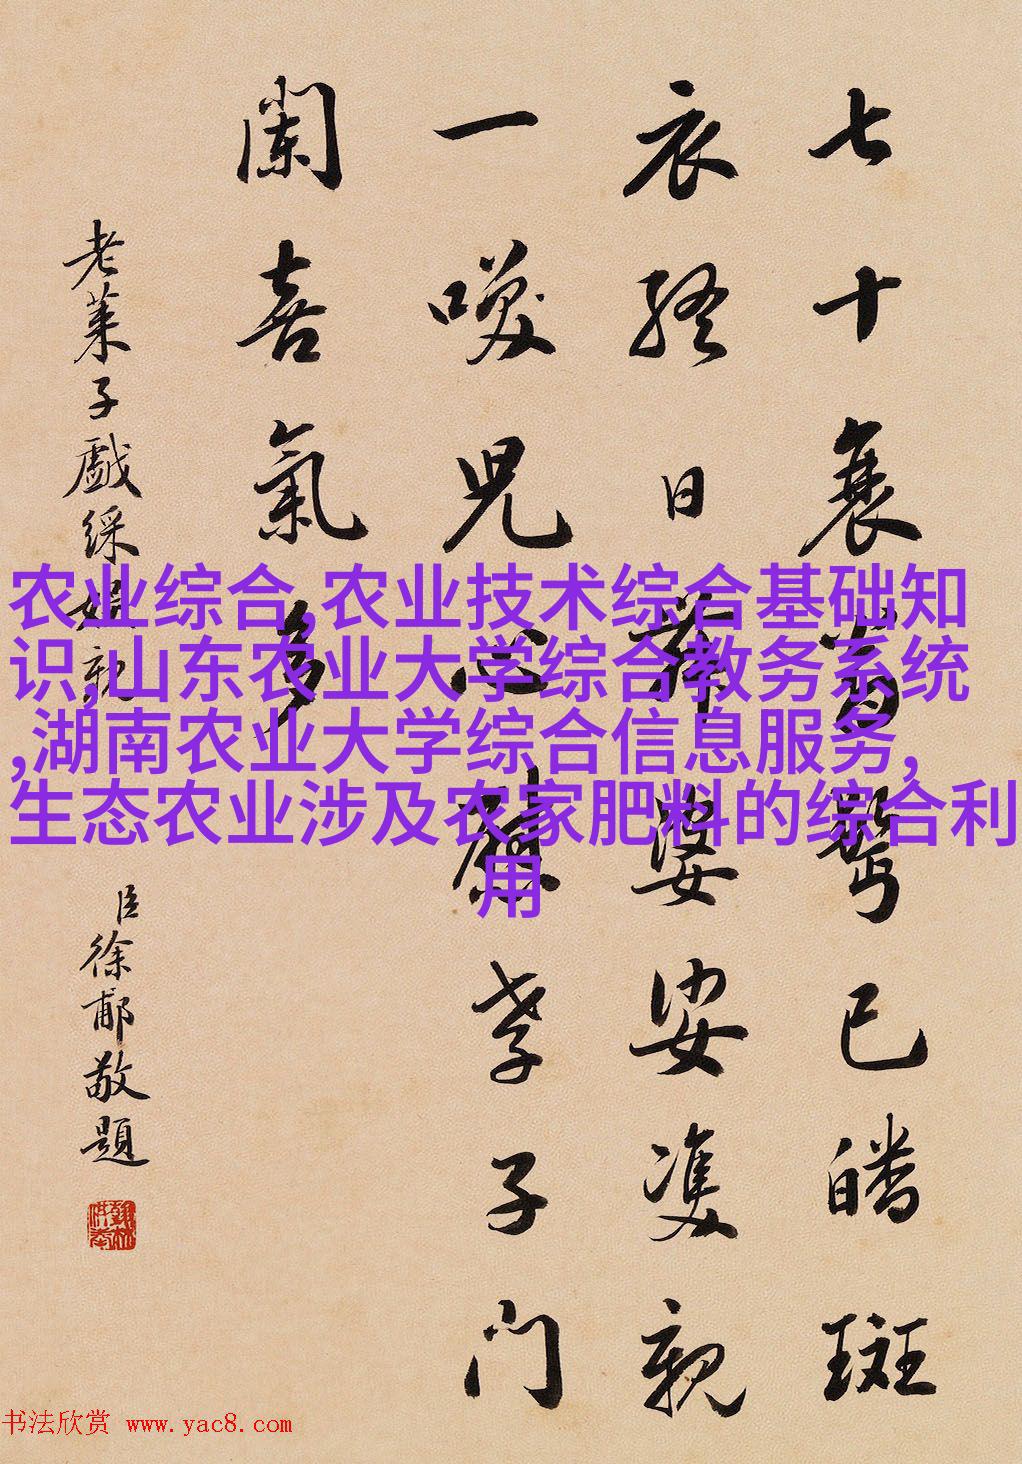 七十衰翁鬢已皤斑
衣終日舞婆娑雙親
一咲兒心慰孝子門
闌喜氣多
老萊子戲綵娛親
臣徐郙敬題
农业综合,农业技术综合基础知
识,山东农业大学综合教务系统
,湖南农业大学综合信息服务,
生态农业涉及农家肥料的综合利
用
书法欣赏 www.yac8.com